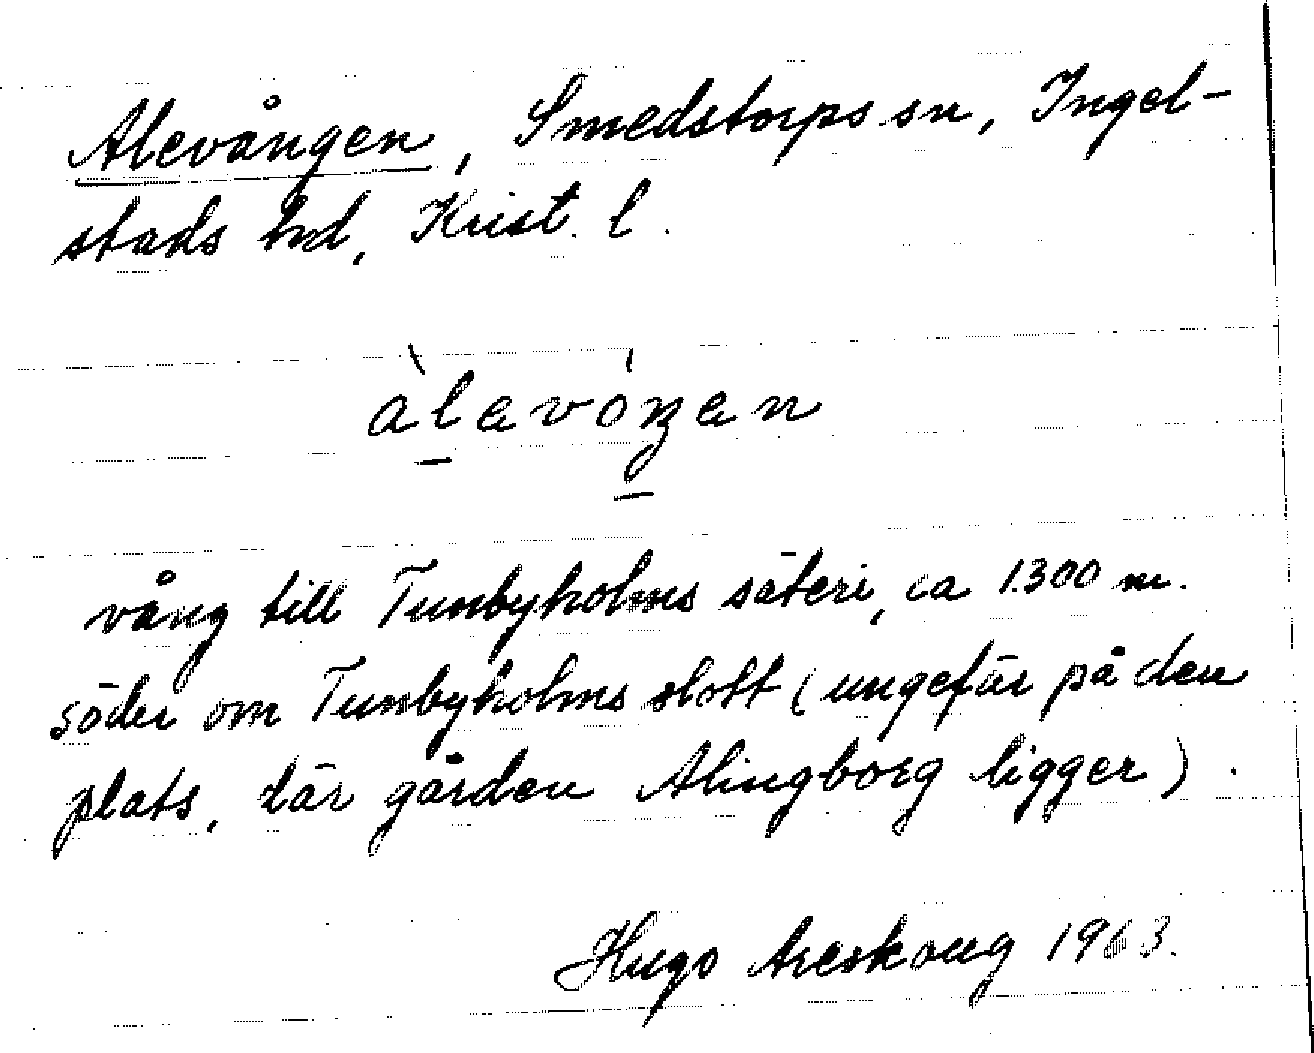 Alevången, Smedstorps sn, Ingel-
stads hd, Krist. l.
àlavóŋan
vång till Tunbyholms säteri, ca 1300 m.
söder om Tunbyholms slott (ungefär på den
plats, där gården Alingborg ligger).
Hugo Areskoug 1963.